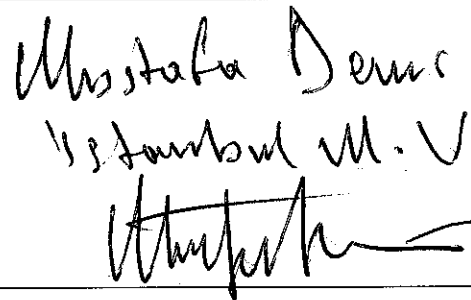 Mustafa Demir
İstanbul M.V